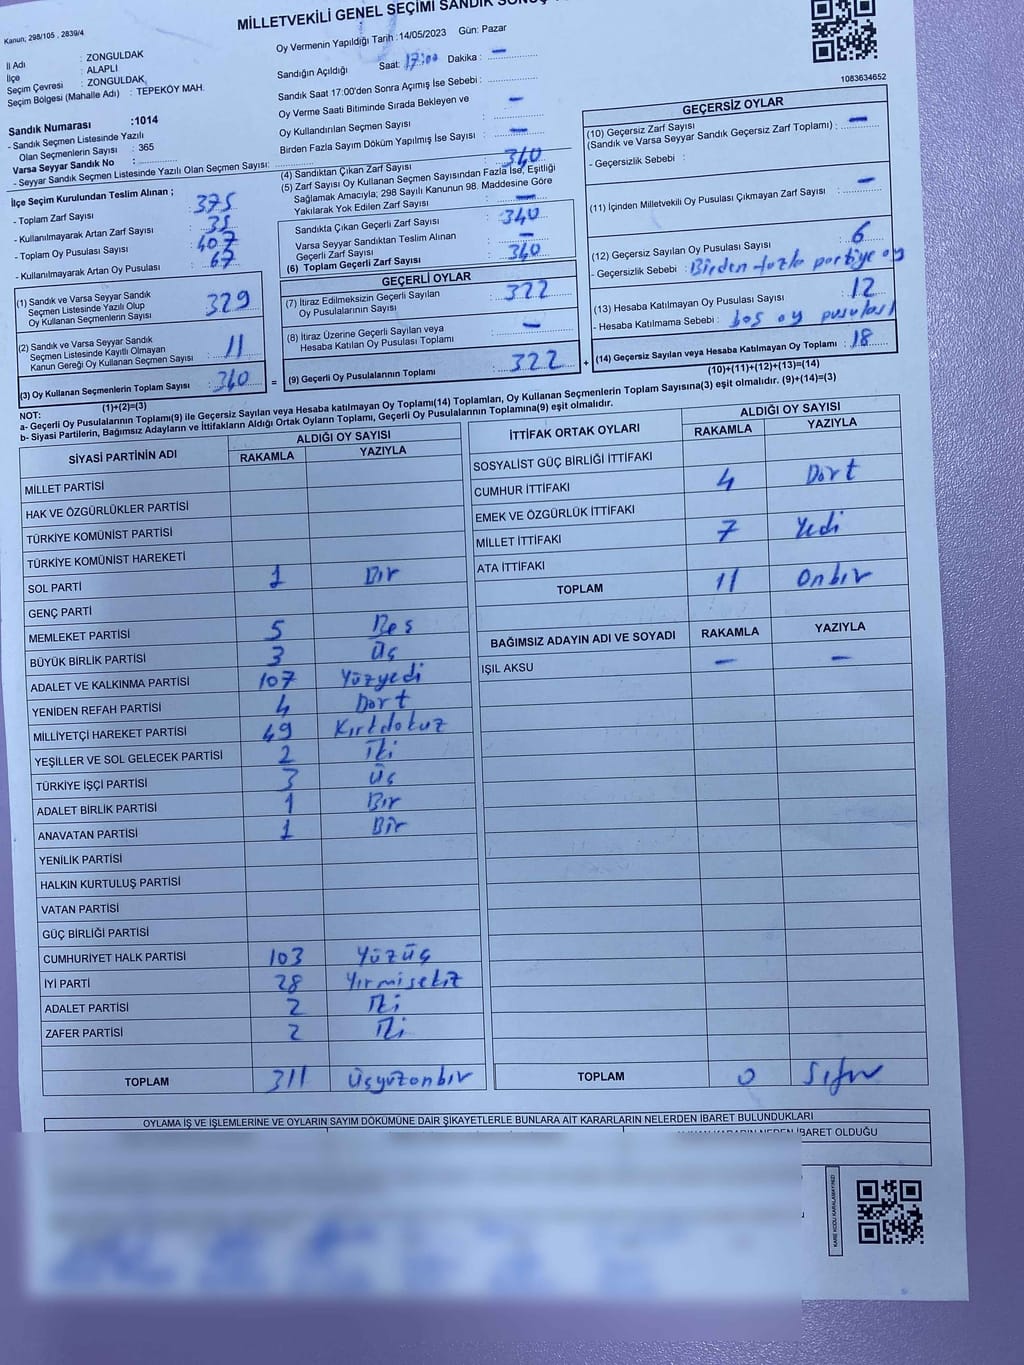 MİLLETVEKİLİ GENEL SEÇİMİ SANDIK
Kanun; 298/105 , 2839/4
İl Adı : ZONGULDAK
İlçe : ALAPLI
Seçim Çevresi : ZONGULDAK
Seçim Bölgesi (Mahalle Adı) : TEPEKÖY MAH.
Sandık Numarası :1014
- Sandık Seçmen Listesinde Yazılı
Olan Seçmenlerin Sayısı : 365
Varsa Seyyar Sandık No :
- Seyyar Sandık Seçmen Listesinde Yazılı Olan Seçmen Sayısı:
Oy Vermenin Yapıldığı Tarih :14/05/2023 Gün: Pazar
Sandığın Açıldığı Saat: 17:00 Dakika : —
Sandık Saat 17:00'den Sonra Açımış İse Sebebi :
Oy Verme Saati Bitiminde Sırada Bekleyen ve
Oy Kullandırılan Seçmen Sayısı : —
Birden Fazla Sayım Döküm Yapılmış İse Sayısı : —
1083634652
İlçe Seçim Kurulundan Teslim Alınan ;
- Toplam Zarf Sayısı : 375
- Kullanılmayarak Artan Zarf Sayısı : 35
- Toplam Oy Pusulası Sayısı : 407
- Kullanılmayarak Artan Oy Pusulası : 67
(1) Sandık ve Varsa Seyyar Sandık
Seçmen Listesinde Yazılı Olup
Oy Kullanan Seçmenlerin Sayısı : 329
(2) Sandık ve Varsa Seyyar Sandık
Seçmen Listesinde Kayıtlı Olmayan
Kanun Gereği Oy Kullanan Seçmen Sayısı : 11
(3) Oy Kullanan Seçmenlerin Toplam Sayısı : 340
(1)+(2)=(3)
(4) Sandıktan Çıkan Zarf Sayısı : 340
(5) Zarf Sayısı Oy Kullanan Seçmen Sayısından Fazla İse, Eşitliği
Sağlamak Amacıyla; 298 Sayılı Kanunun 98. Maddesine Göre
Yakılarak Yok Edilen Zarf Sayısı : —
Sandıkta Çıkan Geçerli Zarf Sayısı : 340
Varsa Seyyar Sandıktan Teslim Alınan
Geçerli Zarf Sayısı : —
(6) Toplam Geçerli Zarf Sayısı : 340
GEÇERLİ OYLAR
(7) İtiraz Edilmeksizin Geçerli Sayılan
Oy Pusulalarının Sayısı : 322
(8) İtiraz Üzerine Geçerli Sayılan veya
Hesaba Katılan Oy Pusulası Toplamı : —
= (9) Geçerli Oy Pusulalarının Toplamı : 322 +
GEÇERSİZ OYLAR
(10) Geçersiz Zarf Sayısı
(Sandık ve Varsa Seyyar Sandık Geçersiz Zarf Toplamı) : —
- Geçersizlik Sebebi :
(11) İçinden Milletvekili Oy Pusulası Çıkmayan Zarf Sayısı : —
(12) Geçersiz Sayılan Oy Pusulası Sayısı : 6
- Geçersizlik Sebebi : Birden fazla partiye oy
(13) Hesaba Katılmayan Oy Pusulası Sayısı : 12
- Hesaba Katılmama Sebebi : boş oy pusulası
(14) Geçersiz Sayılan veya Hesaba Katılmayan Oy Toplamı : 18
(10)+(11)+(12)+(13)=(14)
NOT:
a- Geçerli Oy Pusulalarının Toplamı(9) ile Geçersiz Sayılan veya Hesaba katılmayan Oy Toplamı(14) Toplamları, Oy Kullanan Seçmenlerin Toplam Sayısına(3) eşit olmalıdır. (9)+(14)=(3)
b- Siyasi Partilerin, Bağımsız Adayların ve İttifakların Aldığı Ortak Oyların Toplamı, Geçerli Oy Pusulalarının Toplamına(9) eşit olmalıdır.
SİYASİ PARTİNİN ADI ALDIĞI OY SAYISI
RAKAMLA YAZIYLA
MİLLET PARTİSİ
HAK VE ÖZGÜRLÜKLER PARTİSİ
TÜRKİYE KOMÜNİST PARTİSİ
TÜRKİYE KOMÜNİST HAREKETİ
SOL PARTİ 1 Bir
GENÇ PARTİ
MEMLEKET PARTİSİ 5 Beş
BÜYÜK BİRLİK PARTİSİ 3 Üç
ADALET VE KALKINMA PARTİSİ 107 Yüzyedi
YENİDEN REFAH PARTİSİ 4 Dört
MİLLİYETÇİ HAREKET PARTİSİ 49 Kırkdokuz
YEŞİLLER VE SOL GELECEK PARTİSİ 2 İki
TÜRKİYE İŞÇİ PARTİSİ 3 Üç
ADALET BİRLİK PARTİSİ 1 Bir
ANAVATAN PARTİSİ 1 Bir
YENİLİK PARTİSİ
HALKIN KURTULUŞ PARTİSİ
VATAN PARTİSİ
GÜÇ BİRLİĞİ PARTİSİ
CUMHURİYET HALK PARTİSİ 103 Yüzüç
İYİ PARTİ 28 Yirmisekiz
ADALET PARTİSİ 2 İki
ZAFER PARTİSİ 2 İki
TOPLAM 311 Üçyüzonbir
İTTİFAK ORTAK OYLARI ALDIĞI OY SAYISI
RAKAMLA YAZIYLA
SOSYALİST GÜÇ BİRLİĞİ İTTİFAKI
CUMHUR İTTİFAKI 4 Dört
EMEK VE ÖZGÜRLÜK İTTİFAKI
MİLLET İTTİFAKI 7 Yedi
ATA İTTİFAKI
TOPLAM 11 Onbir
BAĞIMSIZ ADAYIN ADI VE SOYADI RAKAMLA YAZIYLA
IŞIL AKSU — —
TOPLAM 0 Sıfır
OYLAMA İŞ VE İŞLEMLERİNE VE OYLARIN SAYIM DÖKÜMÜNE DAİR ŞİKAYETLERLE BUNLARA AİT KARARLARIN NELERDEN İBARET BULUNDUKLARI
İBARET OLDUĞU
KARE KODU KARALAMAYINIZ!